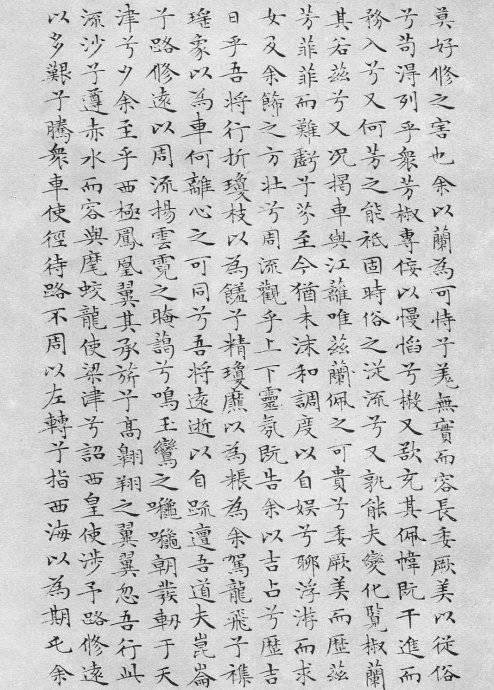 莫好修之害也余以蘭為可恃兮羌無實而容長委厥美以從俗
兮苟得列乎衆芳椒專佞以慢慆兮樧又欲充其佩幃既干進而
務入兮又何芳之能祗固時俗之從流兮又孰能夫變化覽椒蘭
其若茲兮又況揭車與江離唯茲蘭佩之可貴兮委厥美而歷茲
芳菲菲而難虧兮芬至今猶未沬和調度以自娛兮聊浮游而求
女及余飾之方壯兮周流觀乎上下靈氛既告余以吉占兮歷吉
日乎吾將行折瓊枝以為饈兮精瓊爢以為粻為余駕龍飛兮襍
瑤象以為車何離心之可同兮吾將遠逝以自疏邅吾道夫崑崙
兮路修遠以周流揚雲霓之晻藹兮鳴玉鸞之朝發軔于天
津兮夕余至乎西極鳳凰翼其承旂兮高翱翔之翼翼忽吾行此
流沙兮遵赤水而容與麾蛟龍使梁津兮詔西皇使涉予路修遠
以多艱兮騰衆車使徑待路不周以左轉兮指西海以為期屯余